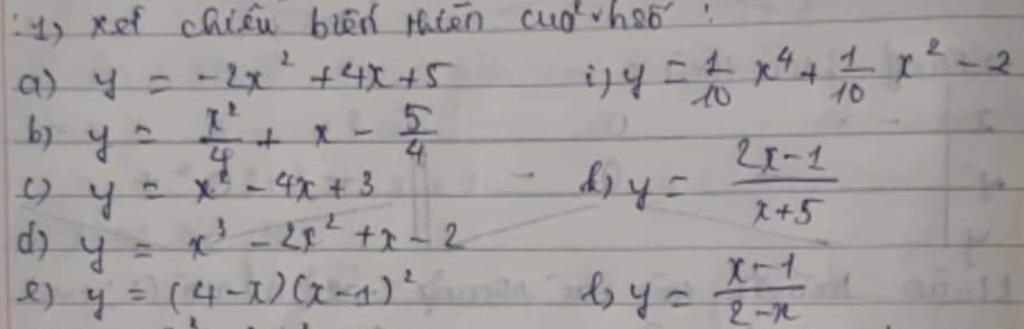 1) xét chiều biến thiên của hsố :
a) y = -2x² + 4x + 5 i) y = 1/10 x⁴ + 1/10 x² - 2
b) y = x²/4 + x - 5/4
c) y = x² - 4x + 3 k) y = (2x-1)/(x+5)
d) y = x³ - 2x² + x - 2
e) y = (4-x)(x-1)² l) y = (x-1)/(2-x)